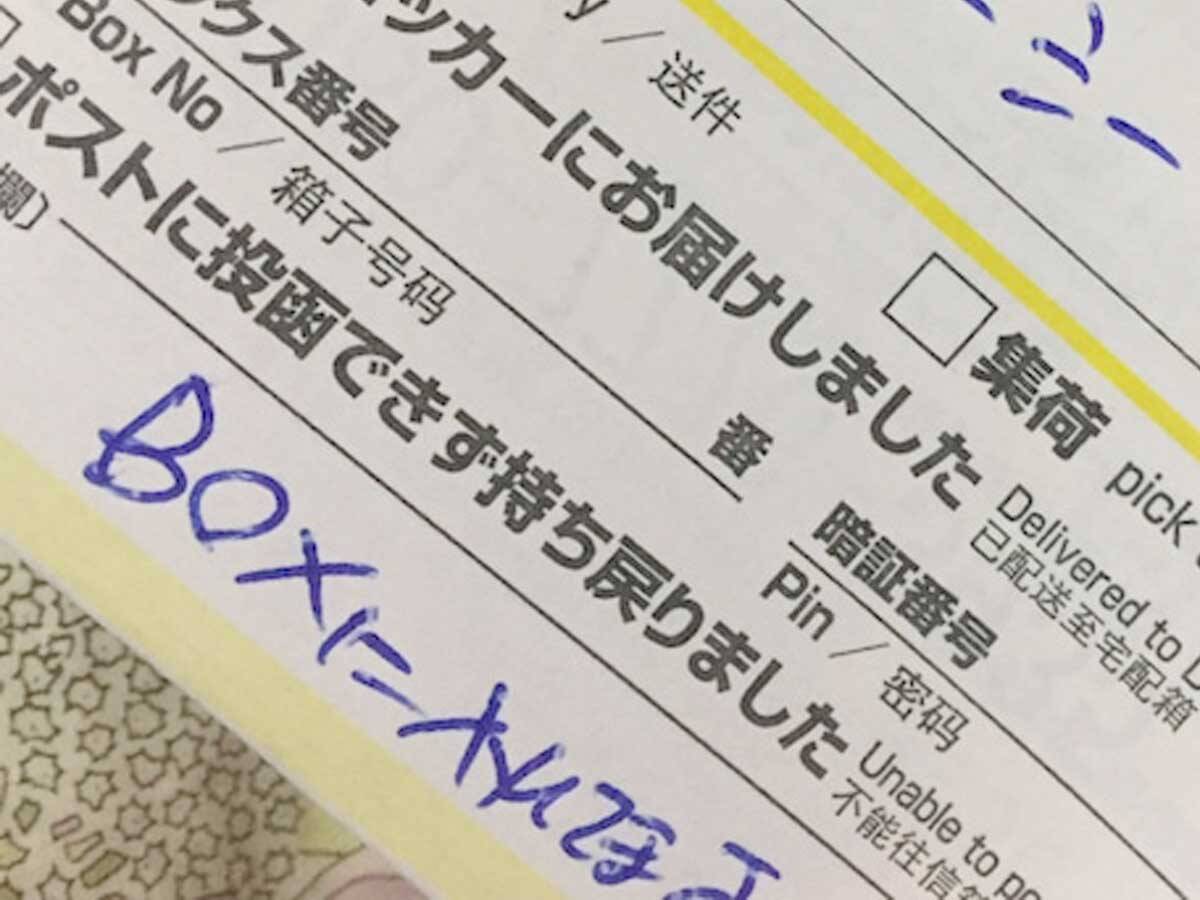 y / 送件 集荷 pick
ッカーにお届けしました Delivered to
已配送至宅配箱
ックス番号 番 暗証番号
Box No / 箱子号码 Pin / 密码
ポストに投函できず持ち戻りました Unable to
不能往信
欄)
BOXに入れて